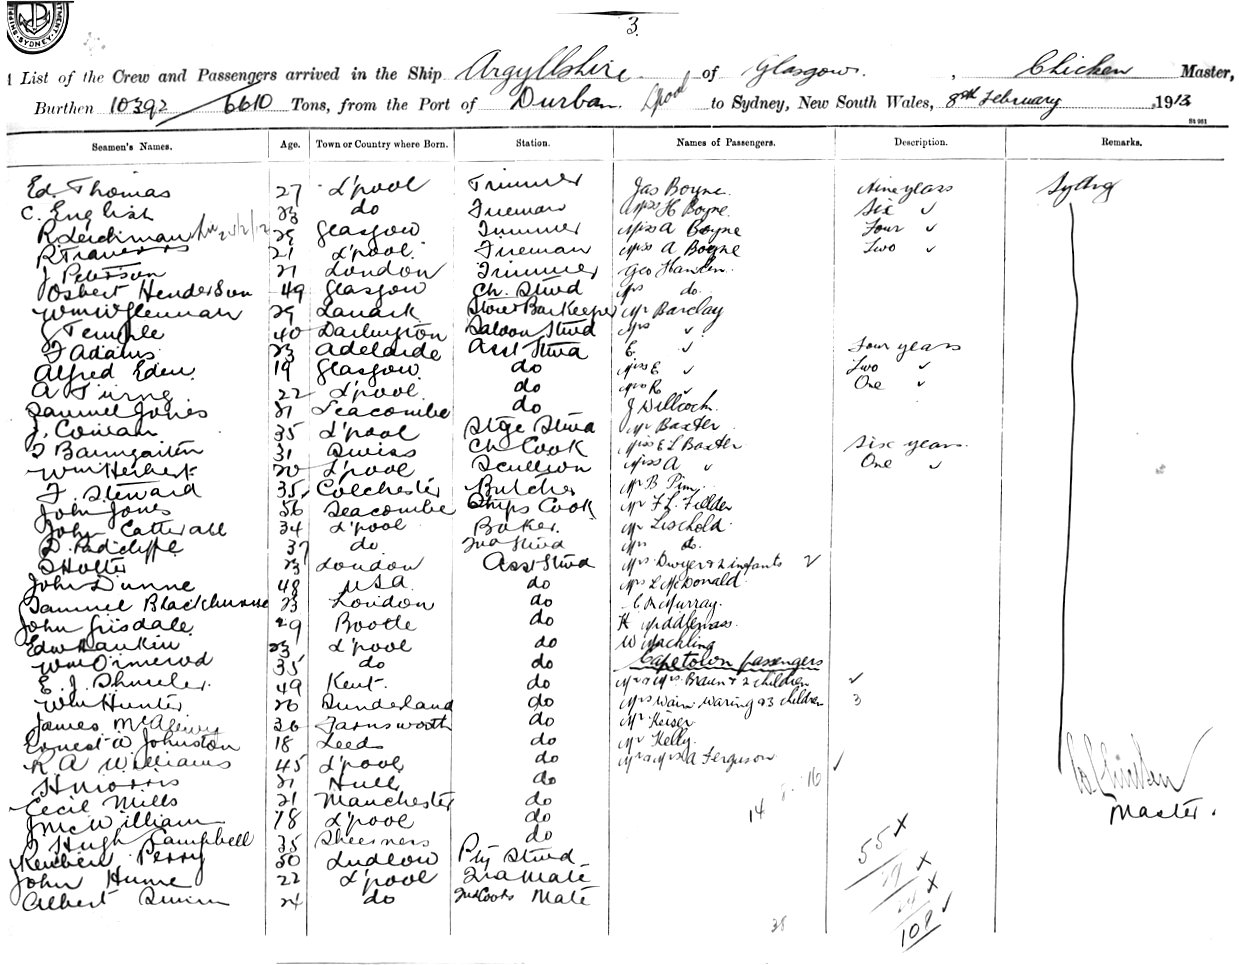 3.
List of the Crew and Passengers arrived in the Ship Argyllshire of Glasgow, Chicken Master,
Burthen 10392 / 6610 Tons, from the Port of Durban L'pool to Sydney, New South Wales, 8th February 1913
Seamen's Names. Age. Town or Country where Born. Station. Names of Passengers. Description. Remarks.
Ed. Thomas 27 L'pool Trimmer Jas Boyne Nine years Sydney
C. English 23 do Fireman Miss H Boyne Six ✓
R Leichman 29 Glasgow Trimmer Miss A Boyne Four ✓
R Travers 21 L'pool Fireman Miss A Boyne Two ✓
J Peterson 21 London Trimmer Geo
Osbert Henderson 49 Glasgow Ch. Stwd Mrs do.
Wm W Glennan 29 Lanark Store Bar Keeper Mr Barclay
J Temple 40 Darlington Saloon Stwd Mrs ✓
F Adams 23 Adelaide Asst Stwd E. ✓ Four years
Alfred Eden 19 Glasgow do Miss E ✓ Two ✓
A 22 L'pool do Miss R ✓ One ✓
Samuel Jones 21 Seacombe do J Willcock
J. Cowan 35 L'pool Stge Stwd Mr Baxter
Baumgarten 31 Swiss Ch Cook Miss E L Baxter Six years
Wm Herbert 20 L'pool Scullion Miss A ✓ One ✓
F. Steward 35 Colchester Butcher Mr B Pim
John Jones 56 Seacombe Ships Cook Mr F L Fielder
John Catterall 34 L'pool Baker Mr Lischold
D. Radcliffe 37 do 2nd Stwd Mrs do.
23 London Asst Stwd Mrs Dwyer & 2 infants 2
John Dunne 48 USA do Mrs L McDonald
Samuel Blackburne 23 London do C A Murray
John Grisdale 29 Bootle do K Middlemass
Edw Rankin 23 L'pool do W Mackling
Wm Ormerod 35 do do Capetown passengers
E. J. 49 Kent. do Mr & Mrs Braun & 2 children ✓
Wm Hunter 26 Sunderland do Mrs Waring & 3 children 3
James McAleavy 36 Farnsworth do Mr Keiser
Ernest W Johnston 18 Leeds do Mr Kelly
R A Williams 45 L'pool do Mr & Mrs A Ferguson ✓
H Morris 21 Hull do
Cecil Mills 21 Manchester do 14 8 16 Master.
J McWilliam 18 L'pool do
Hugh Campbell 35 Sheerness do 55 x
Reuben Perry 50 Ludlow Pty Stwd
John Hume 22 L'pool 2nd Mate
Albert Quinn 24 do 2nd Cooks Mate
38 109 ✓